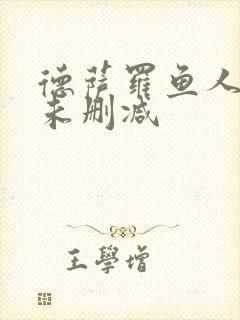 德萨罗鱼人
未删减
王學增